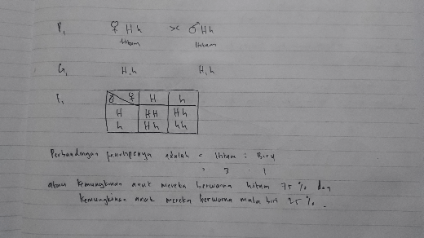 P₁ ♀ Hh >< ♂ Hh
Hitam Hitam
G₁ H, h H, h
F₁ ♂ ♀ H h
H HH Hh
h Hh hh
Perbandingan fenotipenya adalah = Hitam : Biru
= 3 : 1
atau kemungkinan anak mereka berwarna hitam 75 % dan
kemungkinan anak mereka berwarna mata biru 25 %.